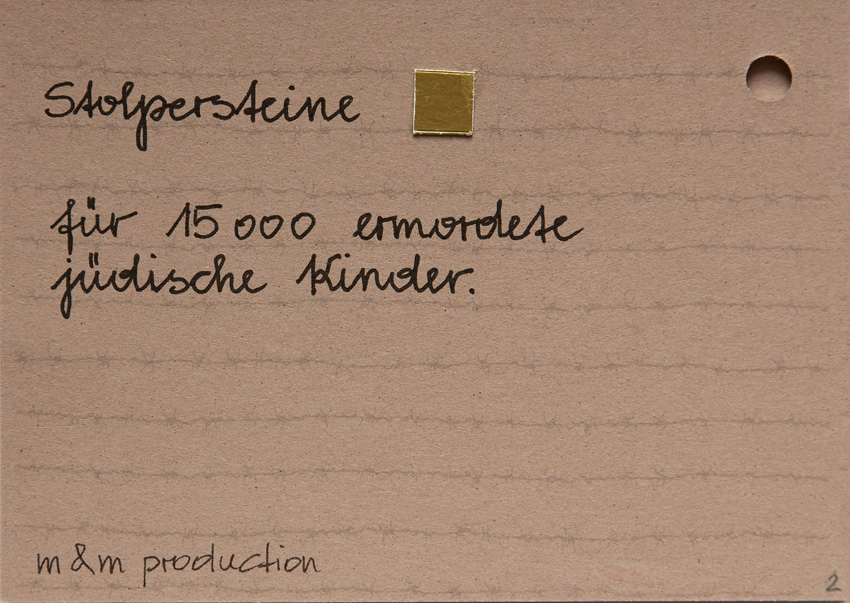 Stolpersteine
für 15 000 ermordete
jüdische Kinder.
m & m production
2